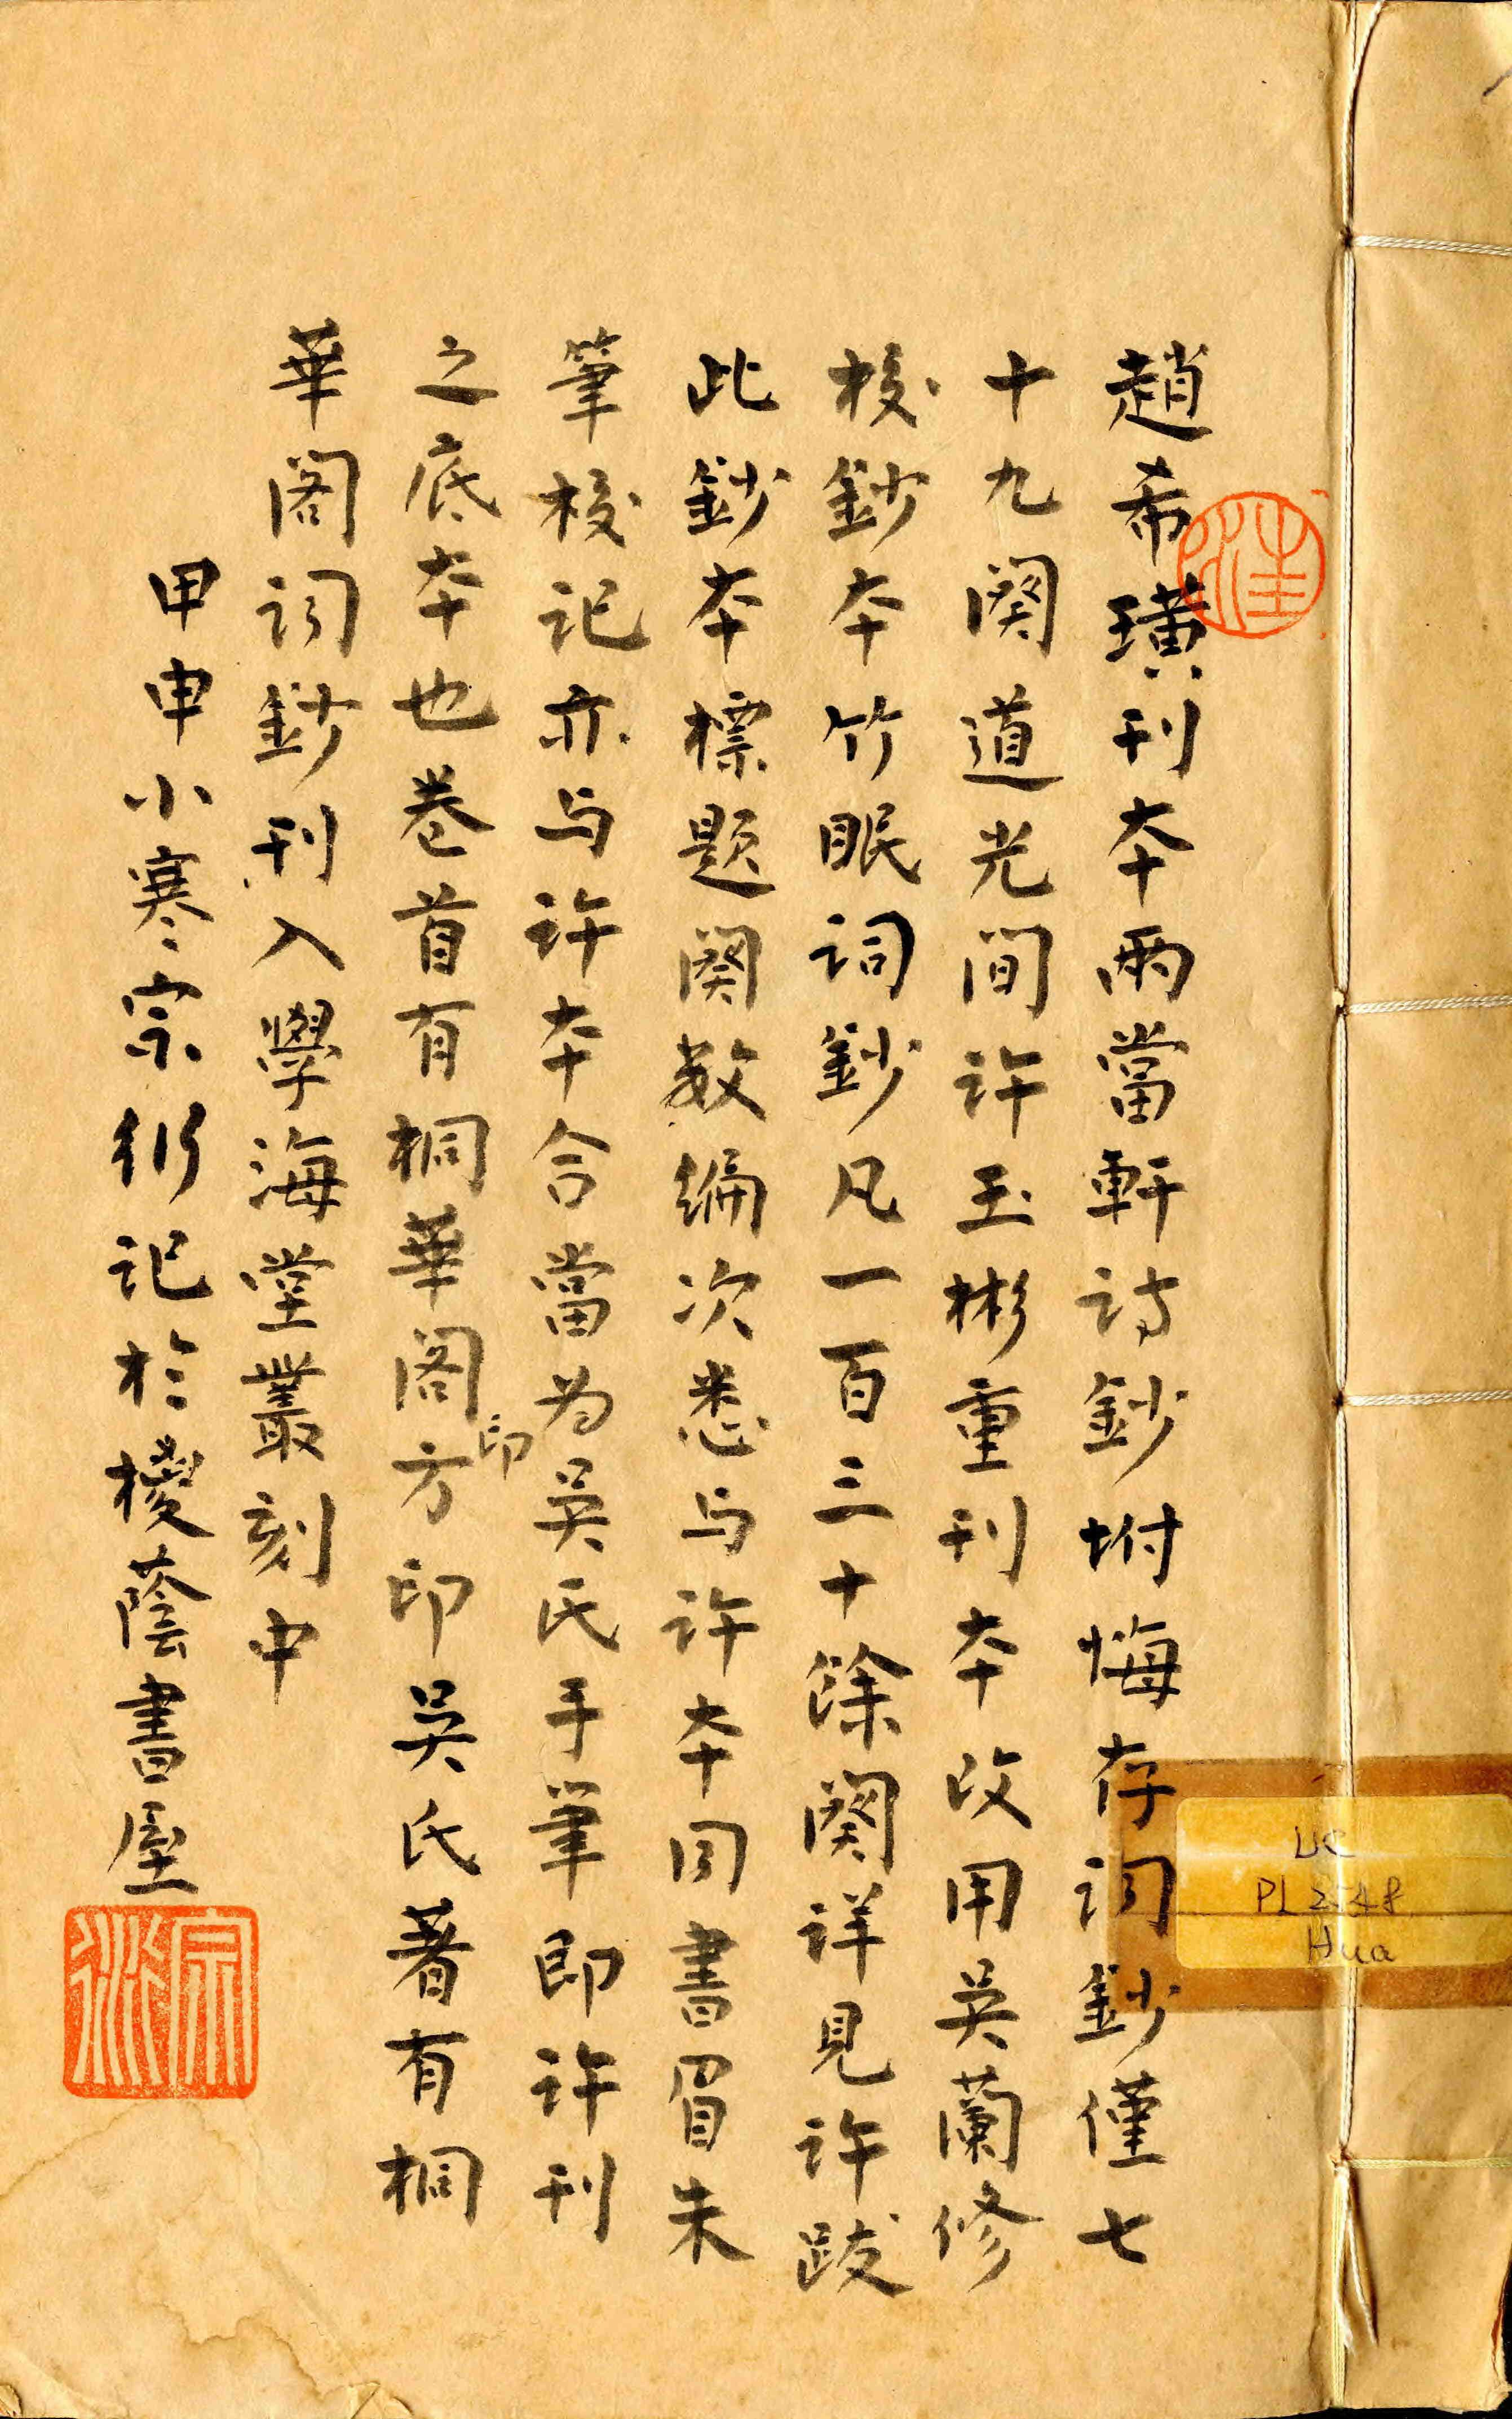 趙希璜刊本兩當軒詩鈔坿悔存詞鈔僅七
十九闋道光間許玉彬重刊本改用吳蘭修
校鈔本竹眠詞鈔凡一百三十餘闋詳見許跋
此鈔本標題闋數編次悉与許本同書眉朱
筆校記亦与許本合當为吳氏手筆即許刊
之底本也卷首有桐華閣方印吳氏著有桐
印
華閣詞鈔刊入學海堂叢刻中
甲申小寒宗衍記於櫌蔭書屋
宗衍
汪
UC
PL 2548
Hua